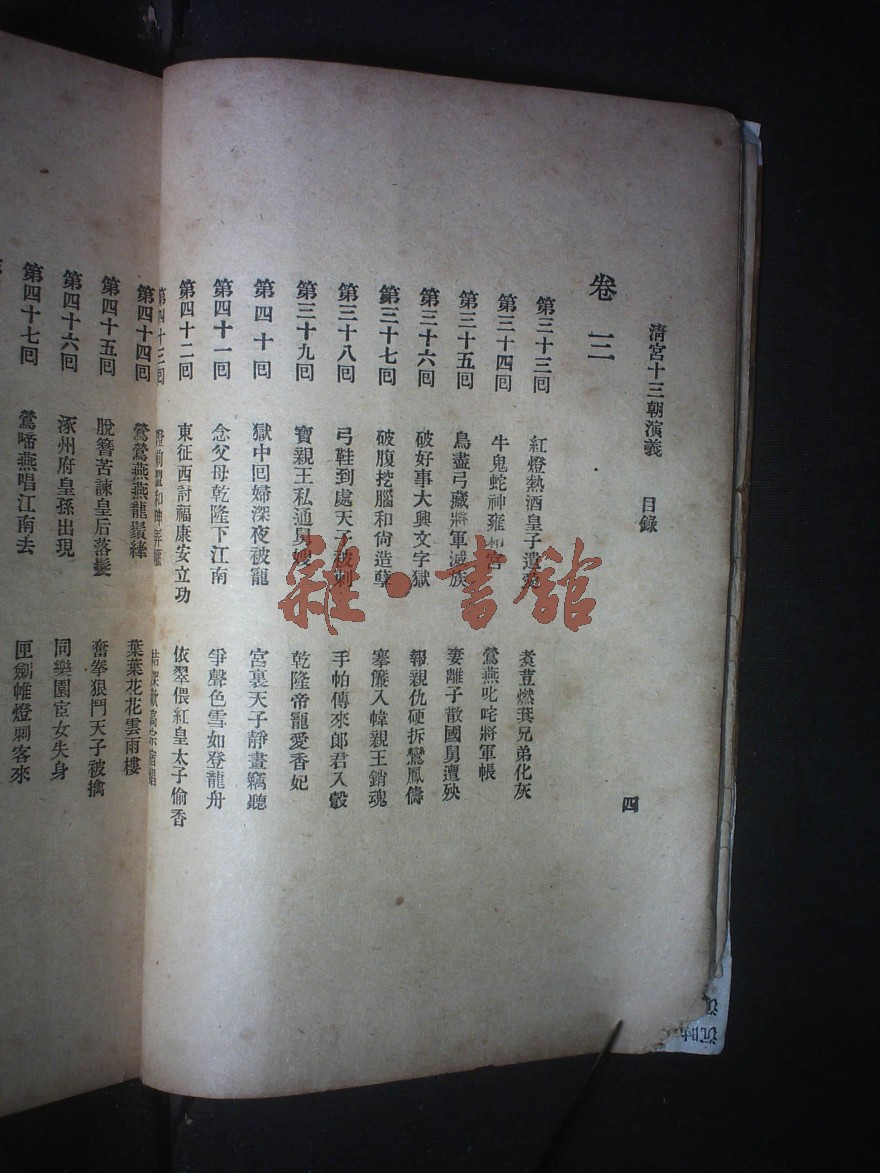 清宮十三朝演義　目錄
四
卷三
第三十三回　紅燈熱酒皇子遺愛　煮荳燃萁兄弟化灰
第三十四回　牛鬼蛇神雍和宮　鶯燕叱咤將軍帳
第三十五回　鳥盡弓藏將軍滅族　妻離子散國舅遭殃
第三十六回　破好事大興文字獄　報親仇硬拆鸞鳳儔
第三十七回　破腹挖腦和尙造孽　搴簾入幃親王銷魂
第三十八回　弓鞋到處天子被刺　手帕傳來郎君入彀
第三十九回　寶親王私通舅嫂　乾隆帝寵愛香妃
第四十回　獄中回婦深夜被寵　宮裏天子靜晝竊聽
第四十一回　念父母乾隆下江南　爭聲色雪如登龍舟
第四十二回　東征西討福康安立功　依翠偎紅皇太子偷香
第四十三回
第四十四回　鶯鶯燕燕龍鬚縴　葉葉花花雲雨樓
第四十五回　脫簪苦諫皇后落髮　奮拳狠鬥天子被擒
第四十六回　涿州府皇孫出現　同樂園宦女失身
第四十七回　鶯啼燕唱江南去　匣劍帷燈刺客來
雜·書館